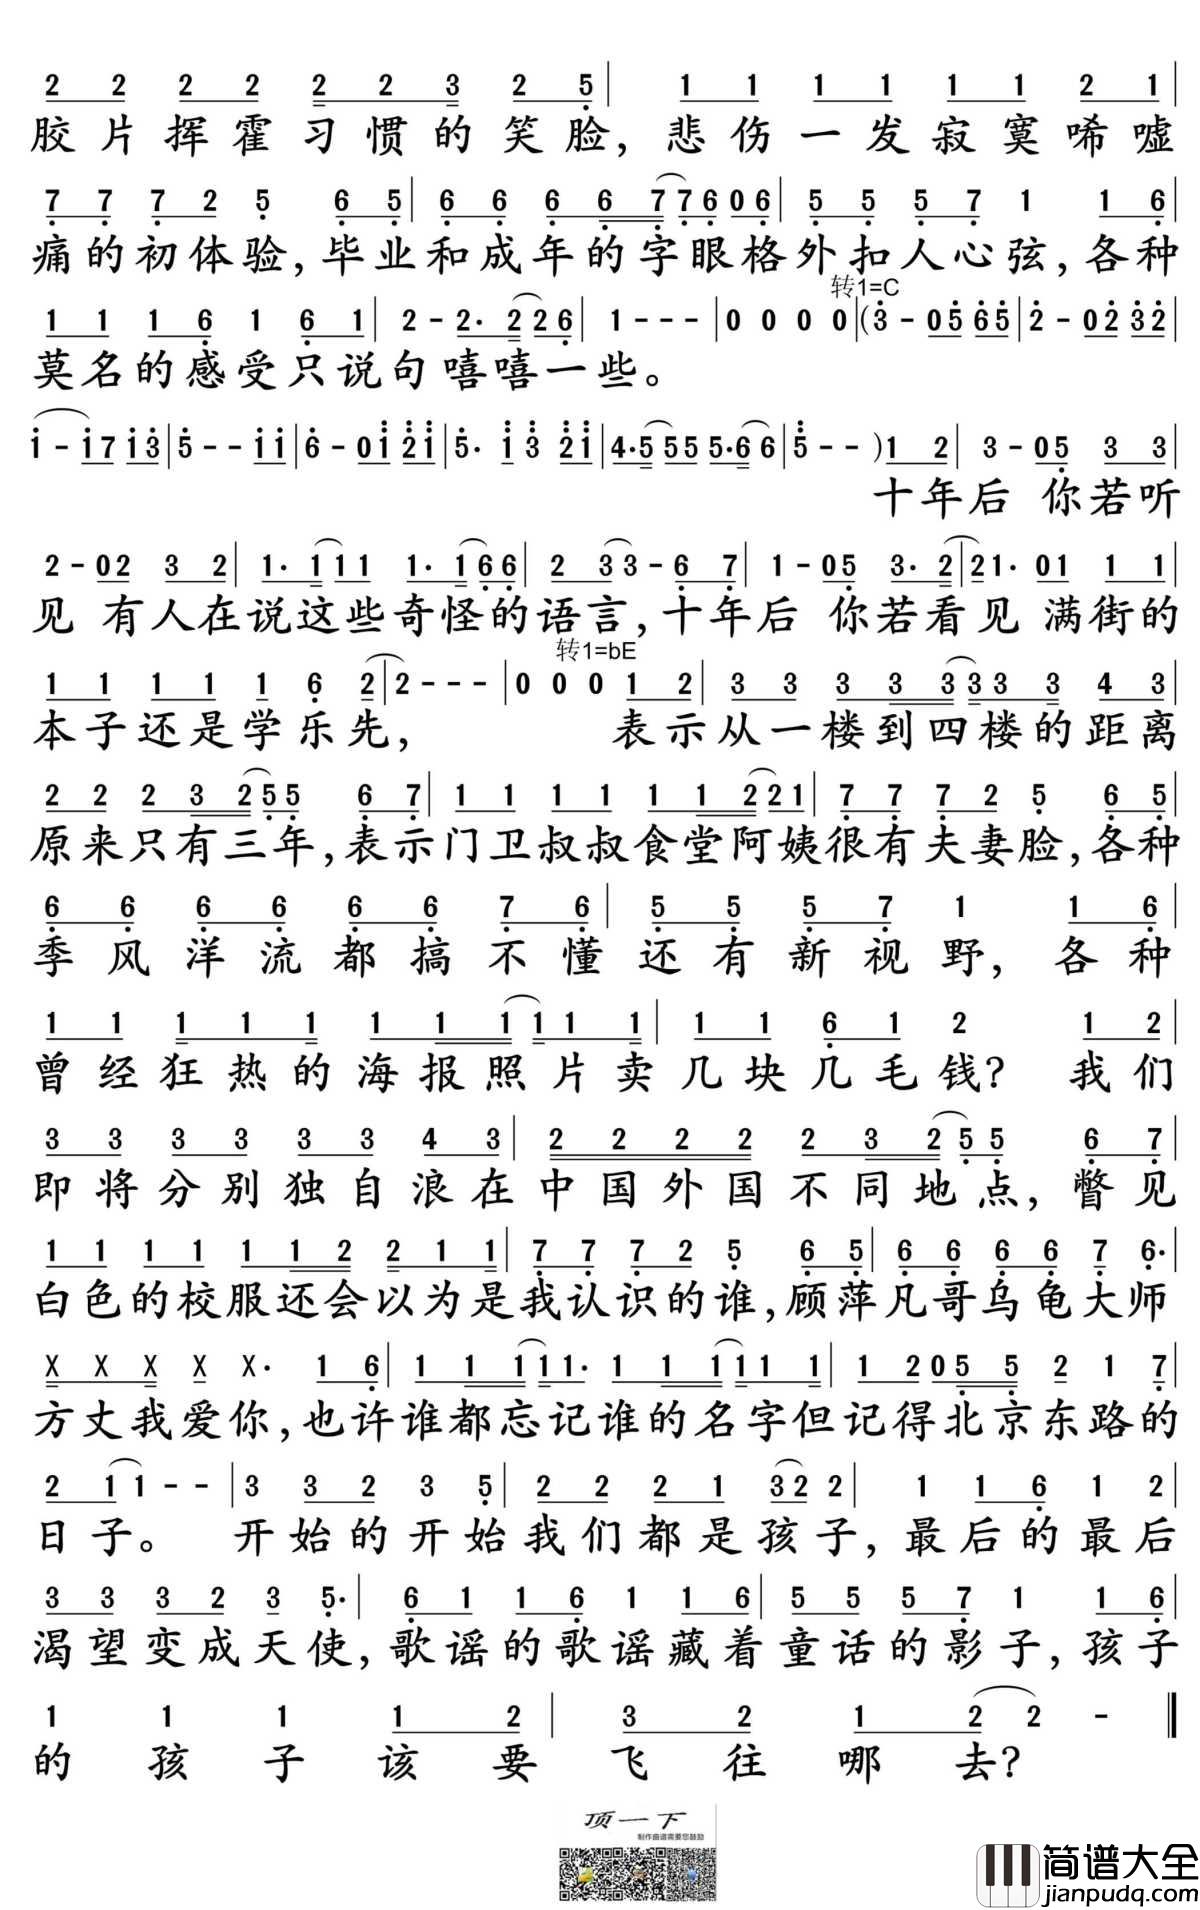 2 2 2 2 2 2 3 2 5 | 1 1 1 1 1 1 2 1 |
胶片挥霍习惯的笑脸，悲伤一发寂寞唏嘘
7 7 7 2 5 6 5 | 6 6 6 6 7 7 6 0 6 | 5 5 5 7 1 1 6 |
痛的初体验，毕业和成年的字眼格外扣人心弦，各种
转1=C
1 1 1 6 1 6 1 | 2 - 2· 2 2 6 | 1 - - - | 0 0 0 0 | (3 - 0 5 6 5 | 2 - 0 2 3 2 |
莫名的感受只说句嘻嘻一些。
1 - 1 7 1 3 | 5 - - 1 1 | 6 - 0 1 2 1 | 5· 1 3 2 1 | 4· 5 5 5 5· 6 6 | 5 - - ) 1 2 | 3 - 0 5 3 3 |
十年后 你若听
2 - 0 2 3 2 | 1· 1 1 1 1· 1 6 6 | 2 3 3 - 6 7 | 1 - 0 5 3· 2 | 2 1· 0 1 1 1 |
见 有人在说这些奇怪的语言，十年后 你若看见 满街的
转1=bE
1 1 1 1 1 6 2 | 2 - - - | 0 0 0 1 2 | 3 3 3 3 3 3 3 3 4 3 |
本子还是学乐先， 表示从一楼到四楼的距离
2 2 2 3 2 5 5 6 7 | 1 1 1 1 1 1 2 2 1 | 7 7 7 2 5 6 5 |
原来只有三年，表示门卫叔叔食堂阿姨很有夫妻脸，各种
6 6 6 6 6 6 7 6 | 5 5 5 7 1 1 6 |
季风洋流都搞不懂还有新视野，各种
1 1 1 1 1 1 1 1 1 1 1 | 1 1 6 1 2 1 2 |
曾经狂热的海报照片卖几块几毛钱？我们
3 3 3 3 3 3 4 3 | 2 2 2 2 2 3 2 5 5 6 7 |
即将分别独自浪在中国外国不同地点，瞥见
1 1 1 1 1 1 2 2 1 1 | 7 7 7 2 5 6 5 | 6 6 6 6 7 6· |
白色的校服还会以为是我认识的谁，顾萍凡哥乌龟大师
X X X X X· 1 6 | 1 1 1 1 1· 1 1 1 1 1 1 | 1 2 0 5 5 2 1 7 |
方丈我爱你，也许谁都忘记谁的名字但记得北京东路的
2 1 1 - - | 3 3 2 3 5 | 2 2 2 1 3 2 2 | 1 1 6 1 2 |
日子。 开始的开始我们都是孩子，最后的最后
3 3 3 2 3 5· | 6 1 1 6 1 1 6 | 5 5 5 7 1 1 6 |
渴望变成天使，歌谣的歌谣藏着童话的影子，孩子
1 1 1 1 2 | 3 2 1 2 2 - ‖
的孩子该要飞往哪去？
顶一下
制作曲谱需要您鼓励
简谱大全
jianpudq.com